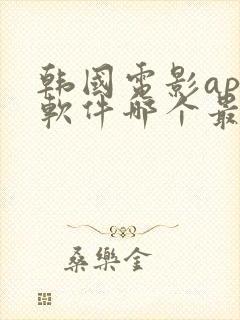 韩國電影ap
軟件哪个最
桑樂金